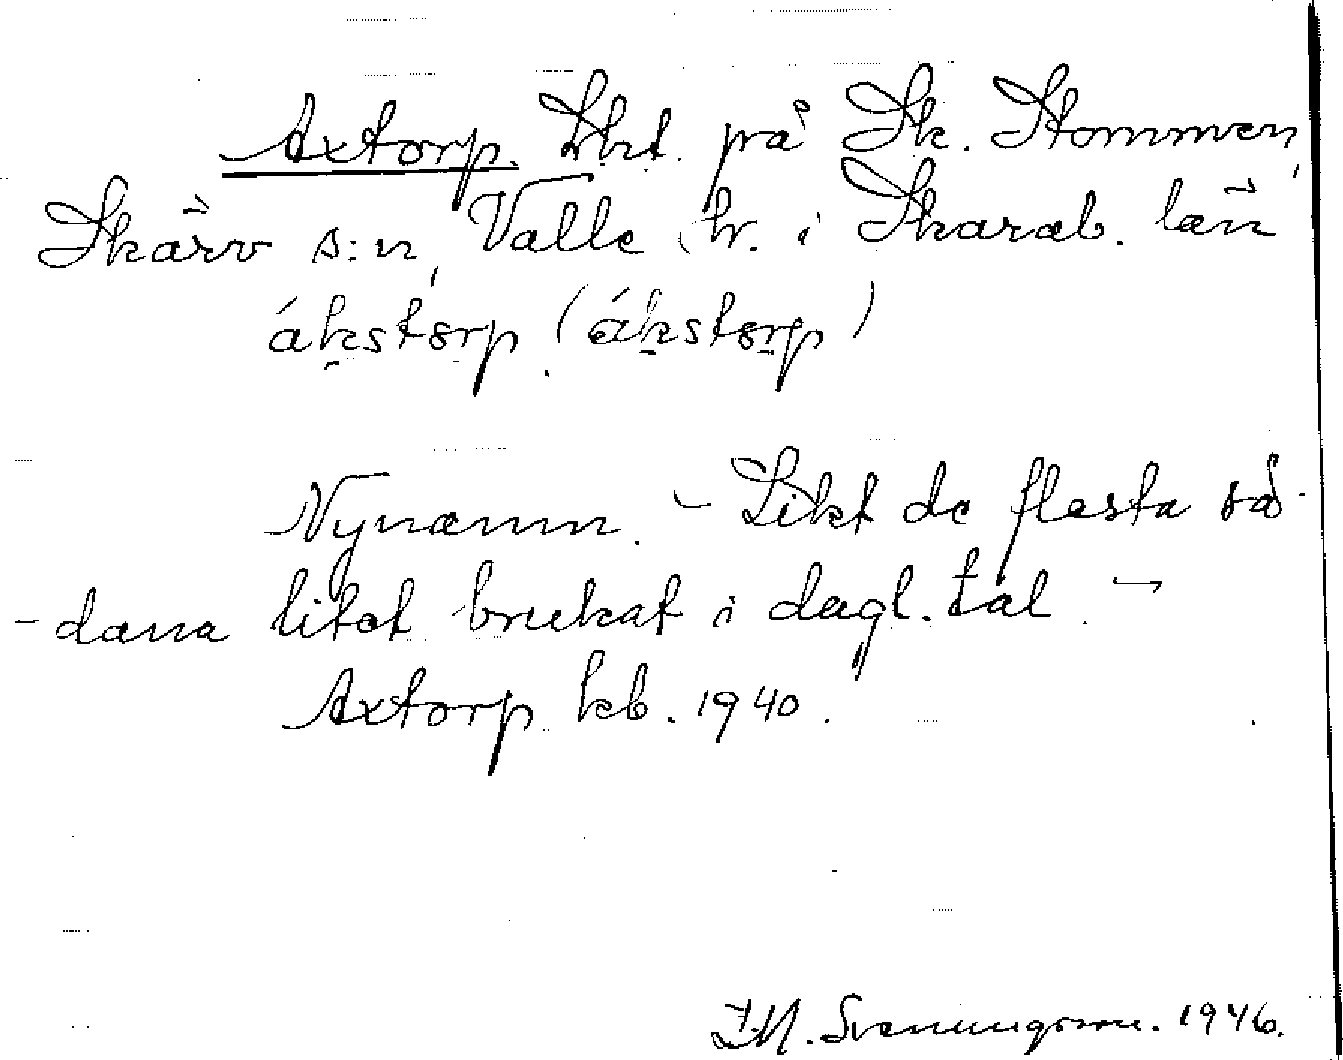 Axtorp. Lht. på Sk. Stommen,
Skärv s:n, Valle hr. i Skarab. län
ákstorp (ákstorp)
Nynamn. - Likt de flesta så-
-dana litet brukat i dagl. tal. -
Axtorp kb. 1940.
Svenungsson. 1946.